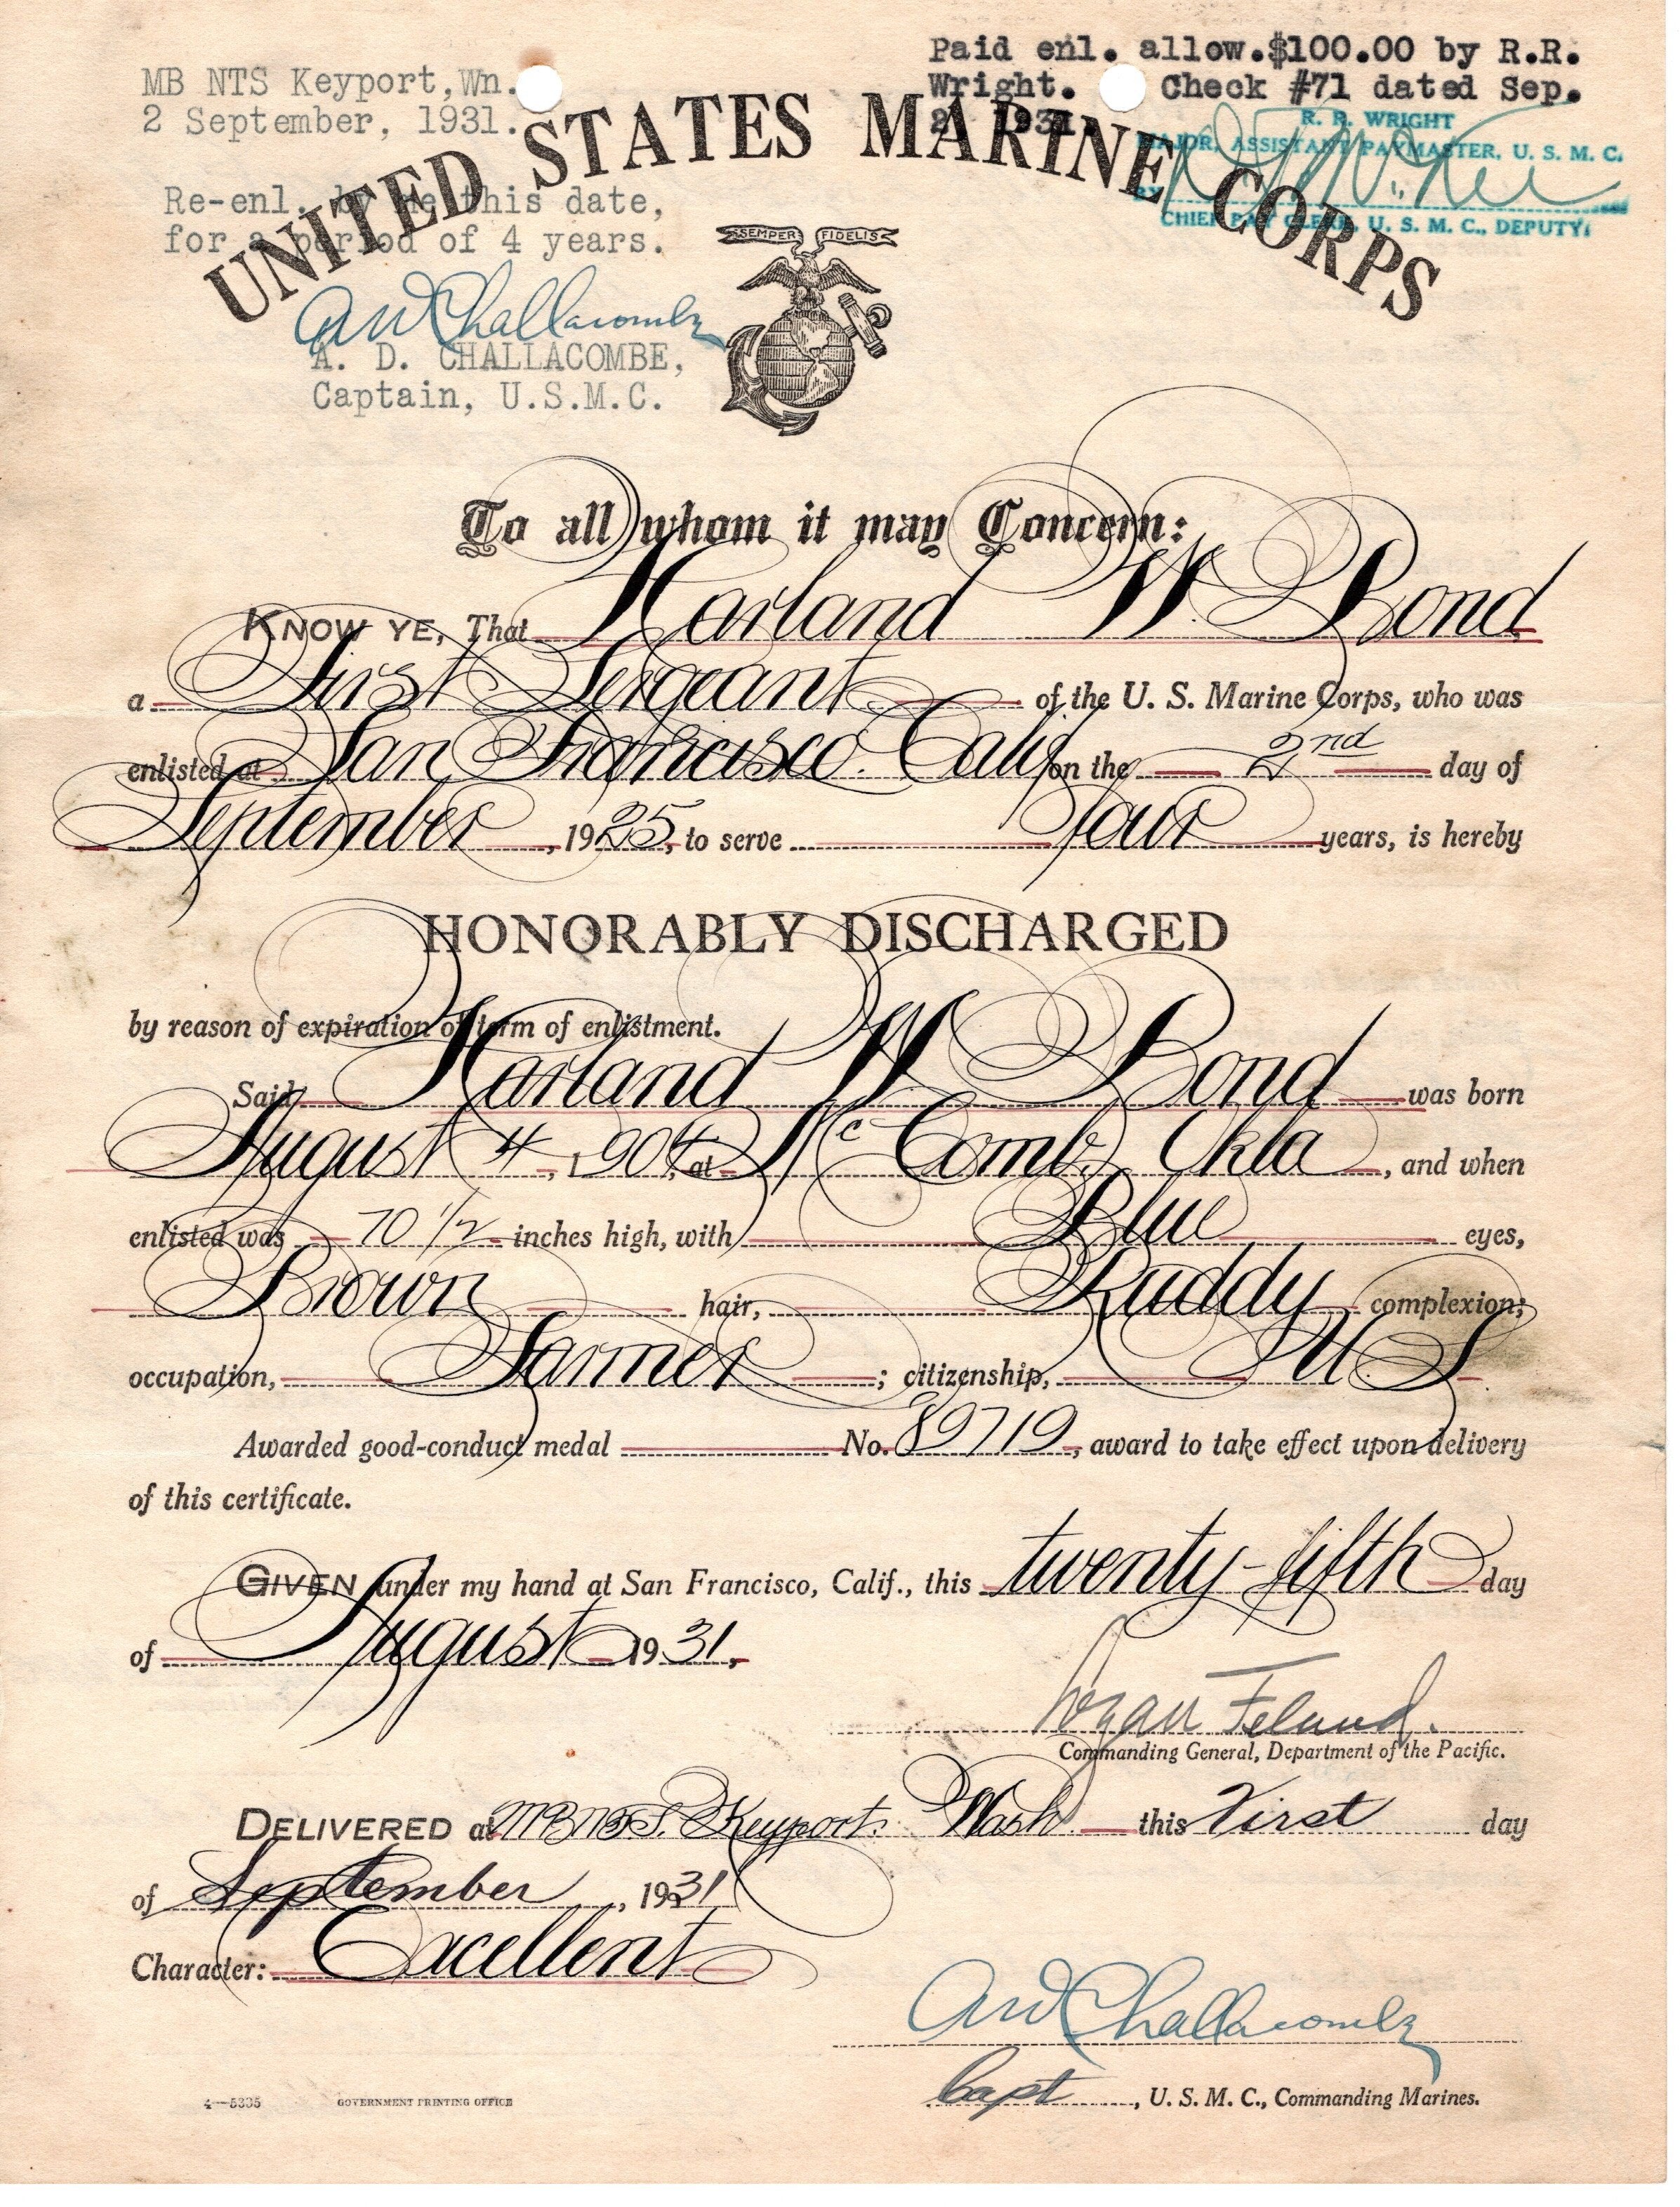 MB NTS Keyport,Wn.
2 September, 1931.
Paid enl. allow.$100.00 by R.R.
Wright. Check #71 dated Sep.
2, 1931.
R. R. WRIGHT
MAJOR, ASSISTANT PAYMASTER, U. S. M. C.
BY
CHIEF PAY CLERK, U. S. M. C., DEPUTY.
UNITED STATES MARINE CORPS
Re-enl. by me this date,
for a period of 4 years.
SEMPER FIDELIS
A D Challacombe
A. D. CHALLACOMBE,
Captain, U.S.M.C.
To all whom it may Concern:
KNOW YE, That Harland W. Bond
a First Sergeant of the U. S. Marine Corps, who was
enlisted at San Francisco. Calif on the 2nd day of
September, 1925, to serve Four years, is hereby
HONORABLY DISCHARGED
by reason of expiration of term of enlistment.
Said Harland W Bond was born
August 4, 1904, at McComb, Okla, and when
enlisted was 70 1/2 inches high, with Blue eyes,
Brown hair, Ruddy complexion;
occupation, Farmer; citizenship, U S
Awarded good-conduct medal No. 89719, award to take effect upon delivery
of this certificate.
GIVEN under my hand at San Francisco, Calif., this twenty-fifth day
of August 1931,
Logan Feland.
Commanding General, Department of the Pacific.
DELIVERED at Keyport. Wash this First day
of September, 1931
Character: Excellent
A D Challacombe
Capt, U. S. M. C., Commanding Marines.
4—5335 GOVERNMENT PRINTING OFFICE